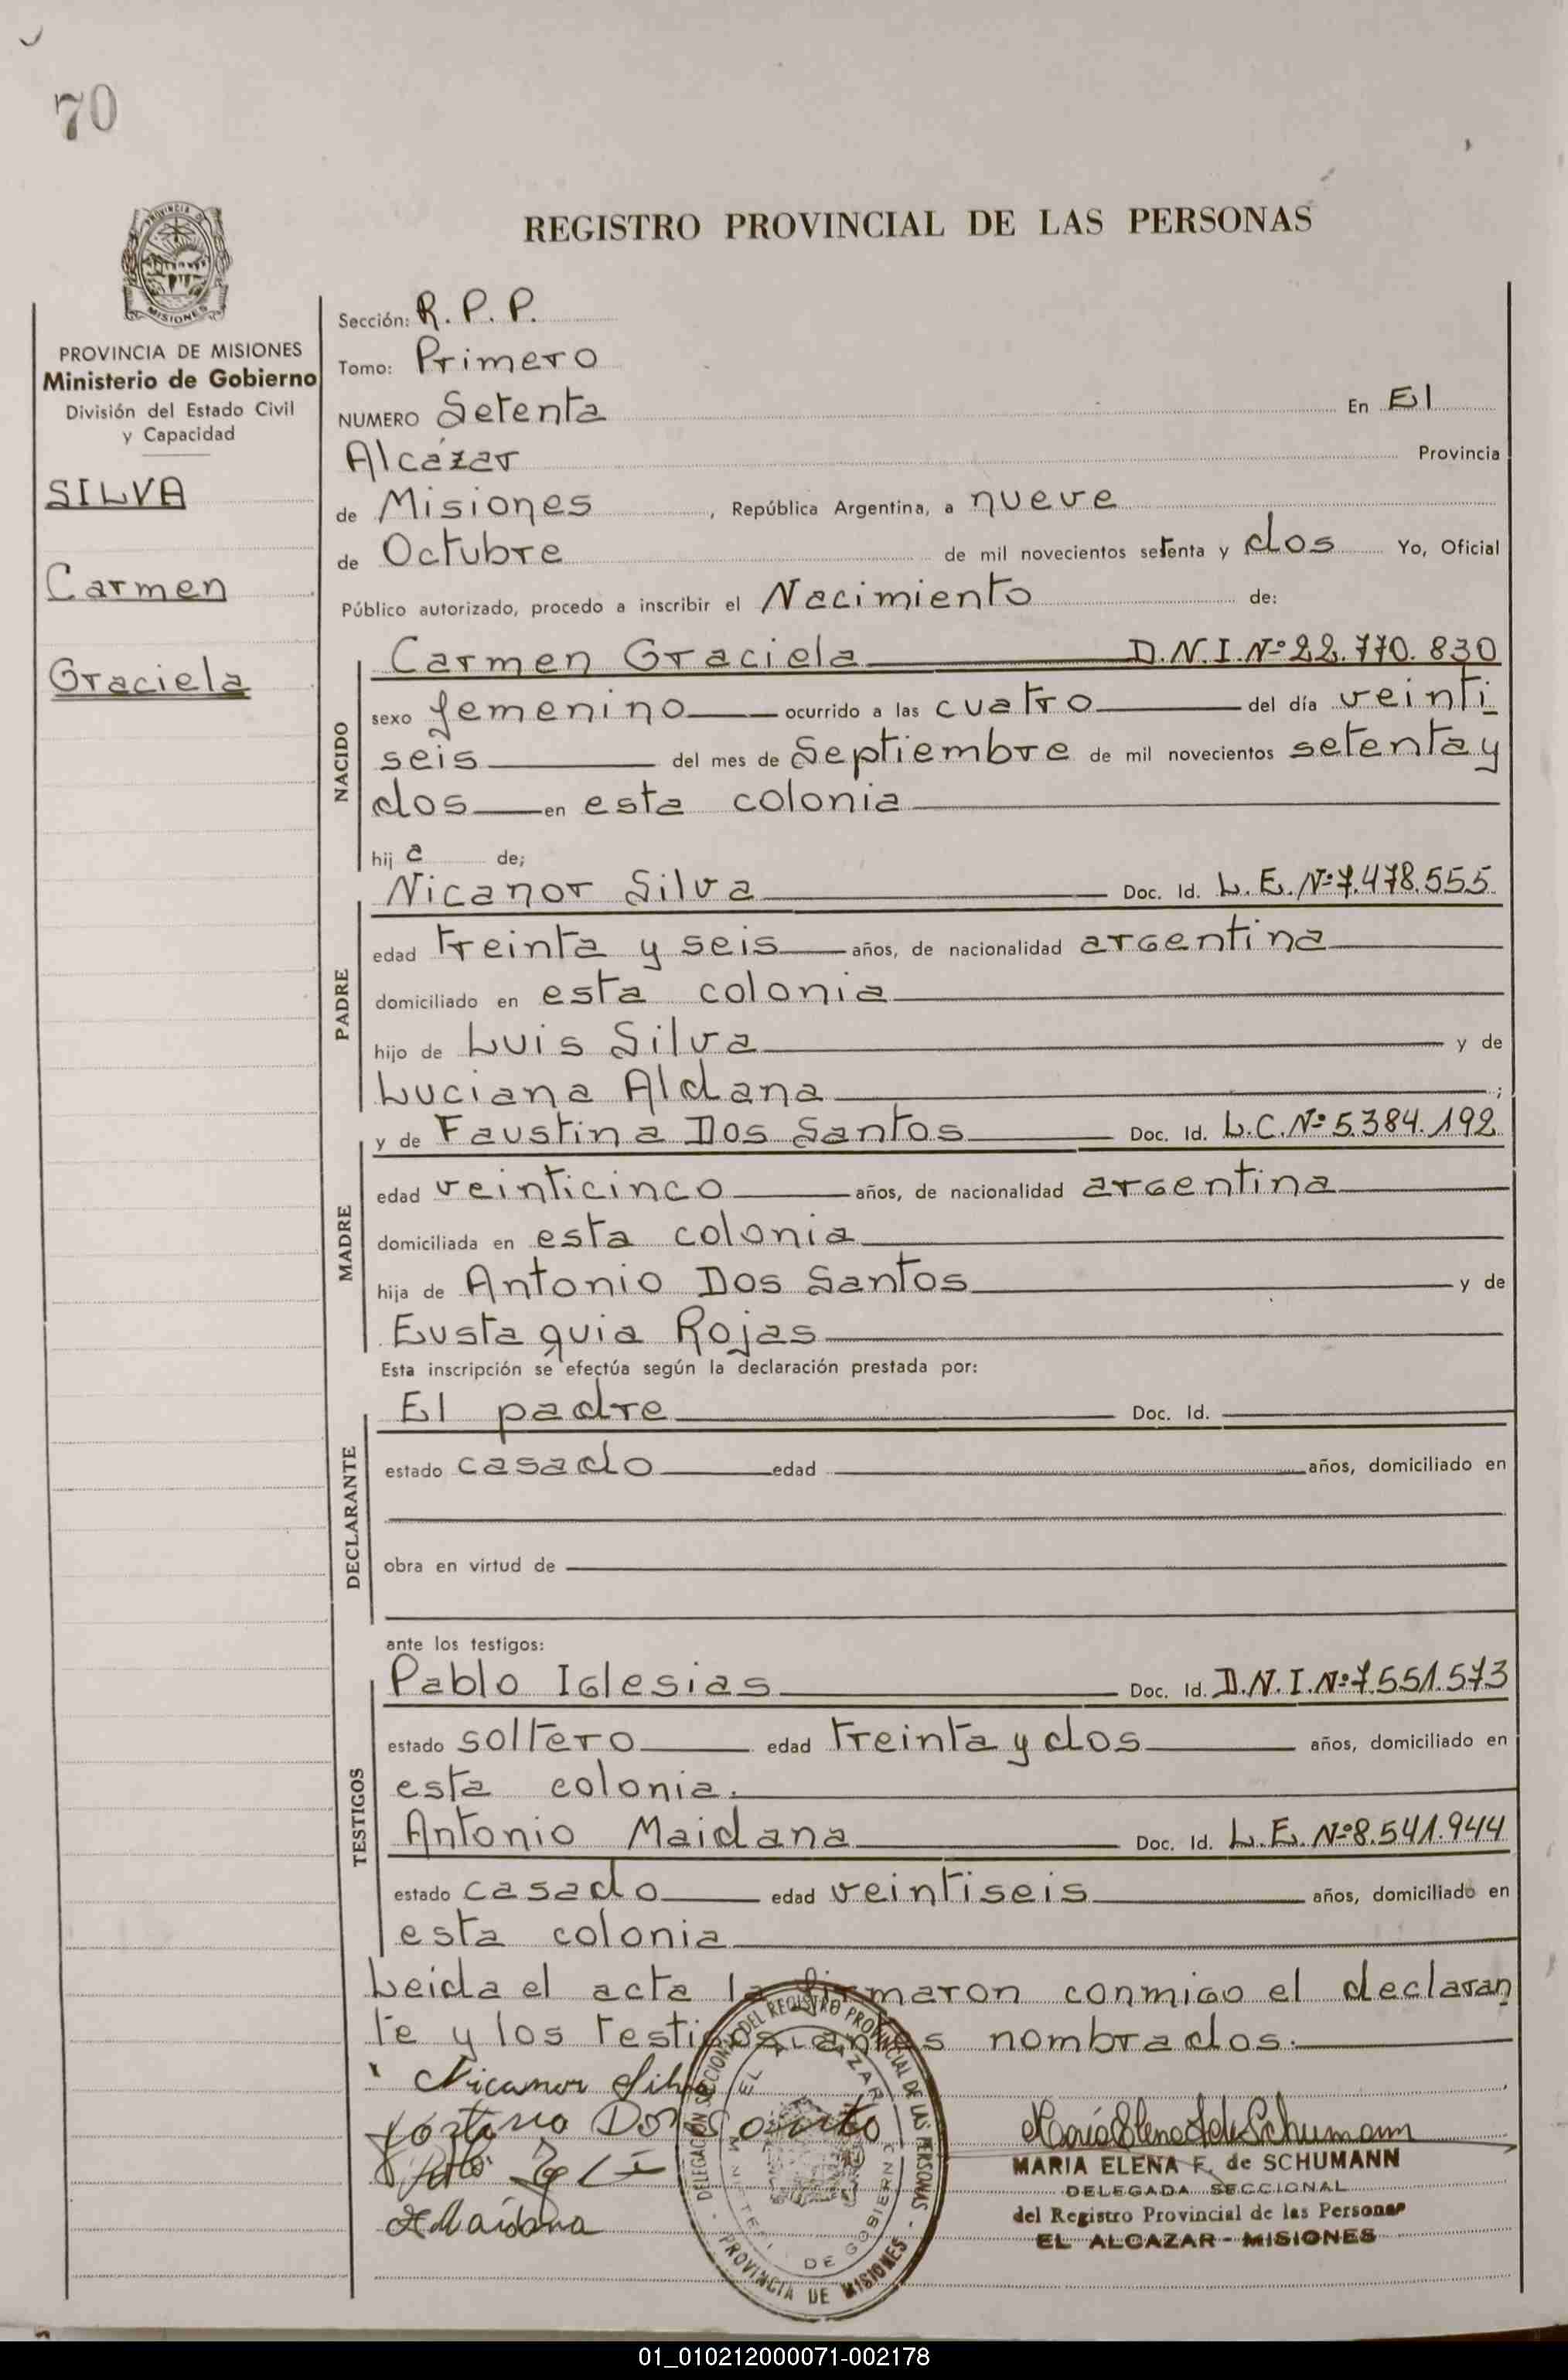 70
REGISTRO PROVINCIAL DE LAS PERSONAS
MISIONES
PROVINCIA DE MISIONES
Ministerio de Gobierno
División del Estado Civil
y Capacidad
SILVA
Carmen
Graciela
Sección: R. P. P.
Tomo: Primero
NUMERO Setenta En El
Alcázar Provincia
de Misiones, República Argentina, a nueve
de Octubre de mil novecientos setenta y dos Yo, Oficial
Público autorizado, procedo a inscribir el Nacimiento de:
NACIDO
Carmen Graciela D.N.I.Nº 22.770.830
sexo femenino ocurrido a las cuatro del día veinti
seis del mes de Septiembre de mil novecientos setenta y
dos en esta colonia
hij a de;
PADRE
Nicanor Silva Doc. Id. L.E. Nº 7.478.555
edad treinta y seis años, de nacionalidad argentina
domiciliado en esta colonia
hijo de Luis Silva y de
Luciana Aldana ;
MADRE
y de Faustina Dos Santos Doc. Id. L.C. Nº 5.384.192
edad veinticinco años, de nacionalidad argentina
domiciliada en esta colonia
hija de Antonio Dos Santos y de
Eustaquia Rojas
Esta inscripción se efectúa según la declaración prestada por:
DECLARANTE
El padre Doc. Id.
estado casado edad años, domiciliado en
obra en virtud de
ante los testigos:
TESTIGOS
Pablo Iglesias Doc. Id. D.N.I. Nº 7.551.573
estado soltero edad treinta y dos años, domiciliado en
esta colonia.
Antonio Maidana Doc. Id. L.E. Nº 8.541.944
estado casado edad veintiseis años, domiciliado en
esta colonia
Leida el acta la firmaron conmigo el declaran
te y los testigos antes nombrados.
Nicanor Silva
Dos Santo
A Maidana
DELEGACIÓN SECCIONAL DEL REGISTRO PROVINCIAL DE LAS PERSONAS
EL ALCAZAR
MINISTERIO DE GOBIERNO
PROVINCIA DE MISIONES
María Elena F. de Schumann
MARIA ELENA F. de SCHUMANN
DELEGADA SECCIONAL
del Registro Provincial de las Personas
EL ALCAZAR - MISIONES
01_010212000071-002178